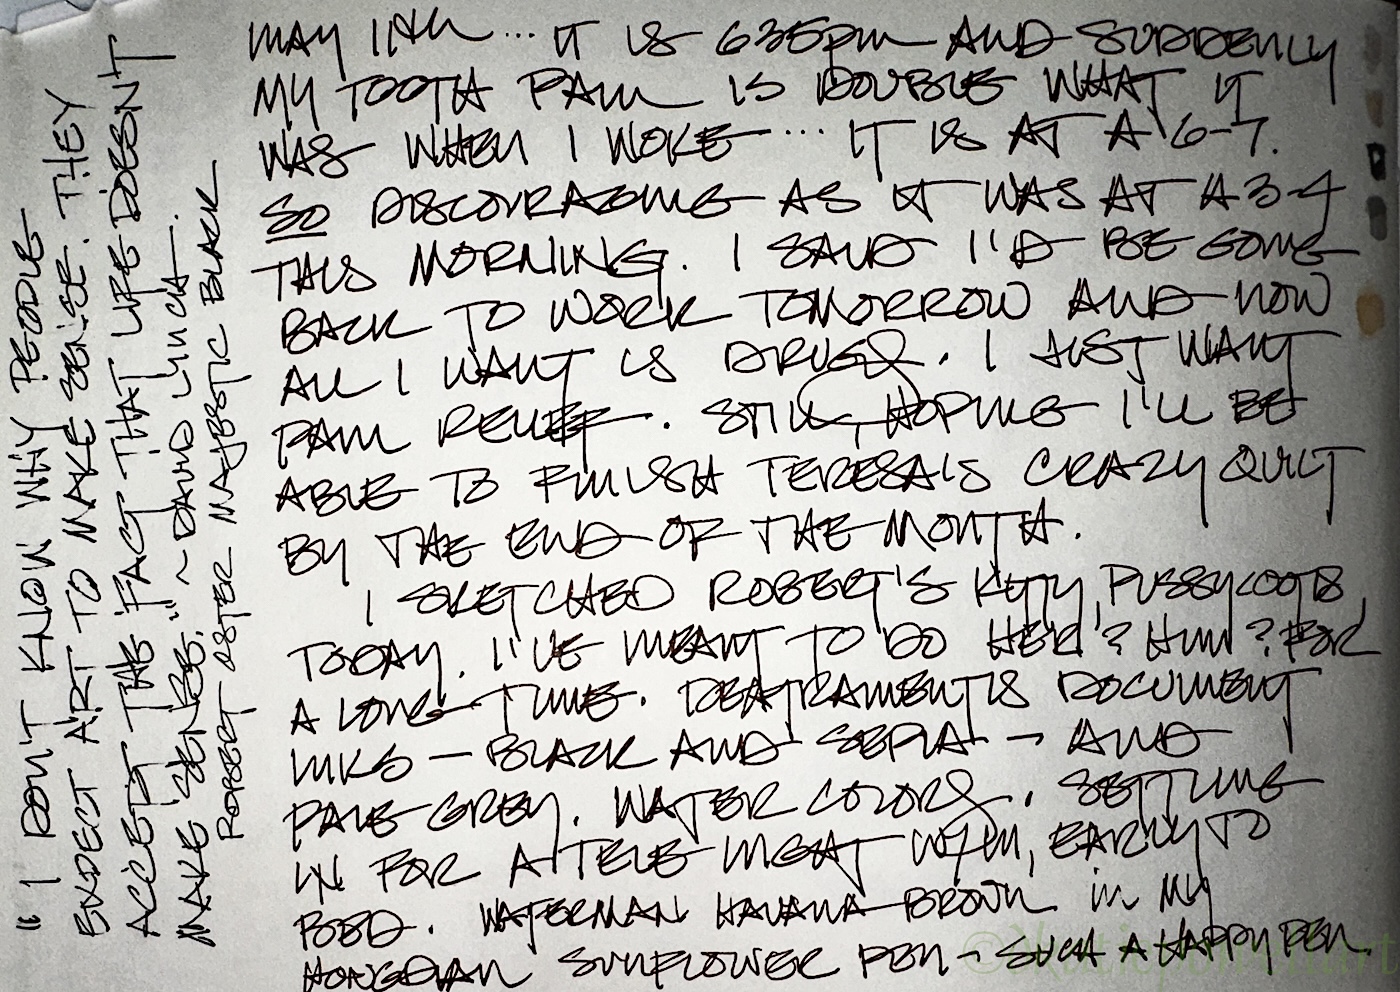 MAY 11th... IT IS 635pm AND SUDDENLY
MY TOOTH PAIN IS DOUBLE WHAT IT
WAS WHEN I WOKE... IT IS AT A 6-7.
SO DISCOURAGING AS IT WAS AT A 3-4
THIS MORNING. I SAID I'D BE GOING
BACK TO WORK TOMORROW AND NOW
ALL I WANT IS DRUGS. I JUST WANT
PAIN RELIEF. STILL HOPING I'LL BE
ABLE TO FINISH TERESA'S CRAZY QUILT
BY THE END OF THE MONTH.
I SKETCHED ROBERT'S KITTY, PUSSYCOOTS,
TODAY. I'VE MEANT TO DO HER? HIM? FOR
A LONG TIME. DEATRAMENTIS DOCUMENT
INKS - BLACK AND SEPIA - AND
PALE GREY. WATER COLORS. SETTLING
IN FOR A TELE-MEAT W/JIM, EARLY TO
BED. WATERMAN HAVANA BROWN in MY
HONGDIAN SUNFLOWER PEN - SUCH A HAPPY PEN.
"I DON'T KNOW WHY PEOPLE
EXPECT ART TO MAKE SENSE. THEY
ACCEPT THE FACT THAT LIFE DOESN'T
MAKE SENSE." ~ DAVID LYNCH.
ROBERT OSTER MAJESTIC BLACK